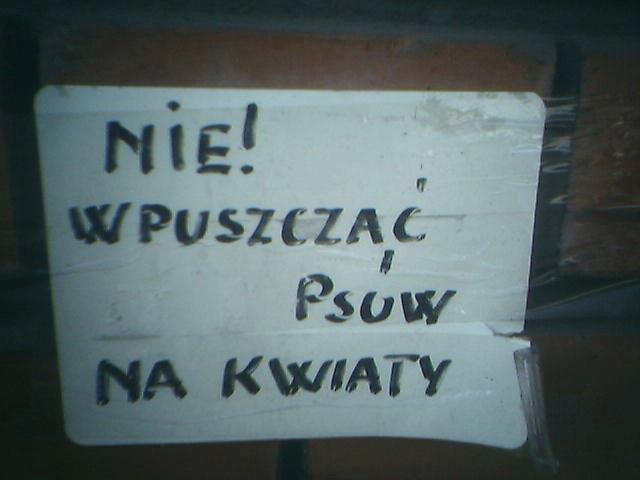 NIE!
WPUSZCZAĆ
PSÓW
NA KWIATY